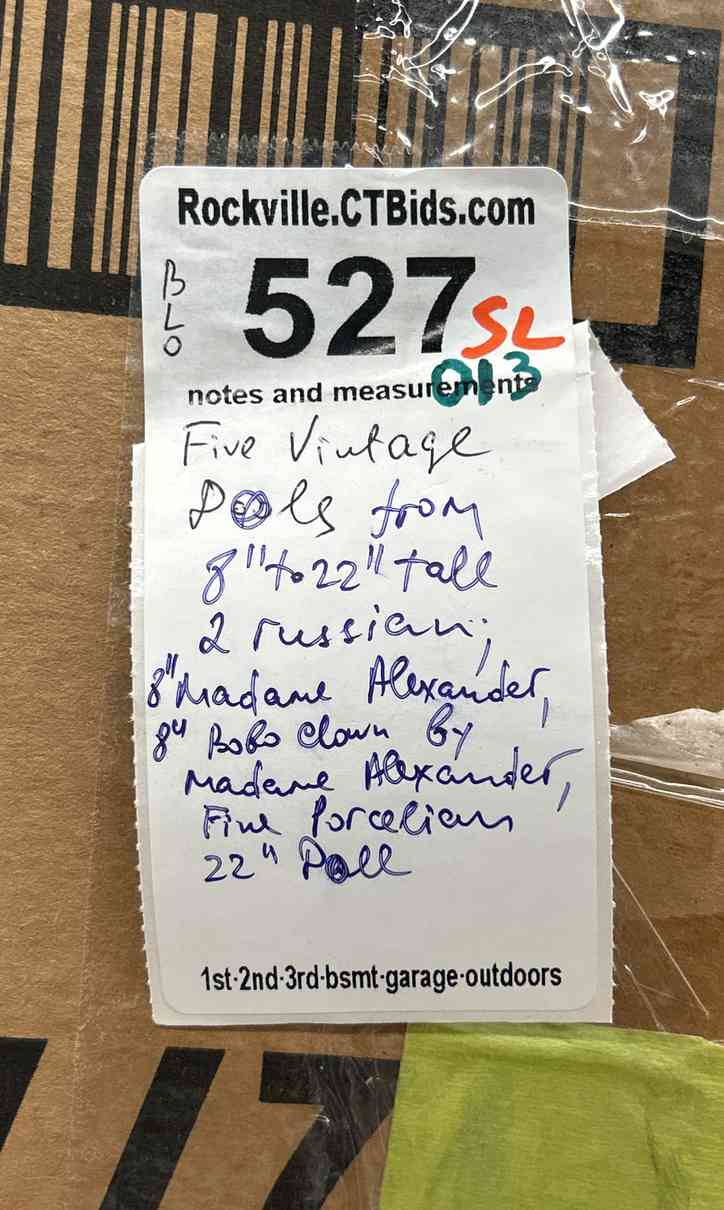 Rockville.CTBids.com
BLO
527 SL
013
notes and measurements
Five Vintage
Dols from
8" to 22" tall
2 russian;
8" Madame Alexander,
8" Bobo Clown by
Madame Alexander,
Fine Porcelian
22" Doll
1st·2nd·3rd·bsmt·garage·outdoors